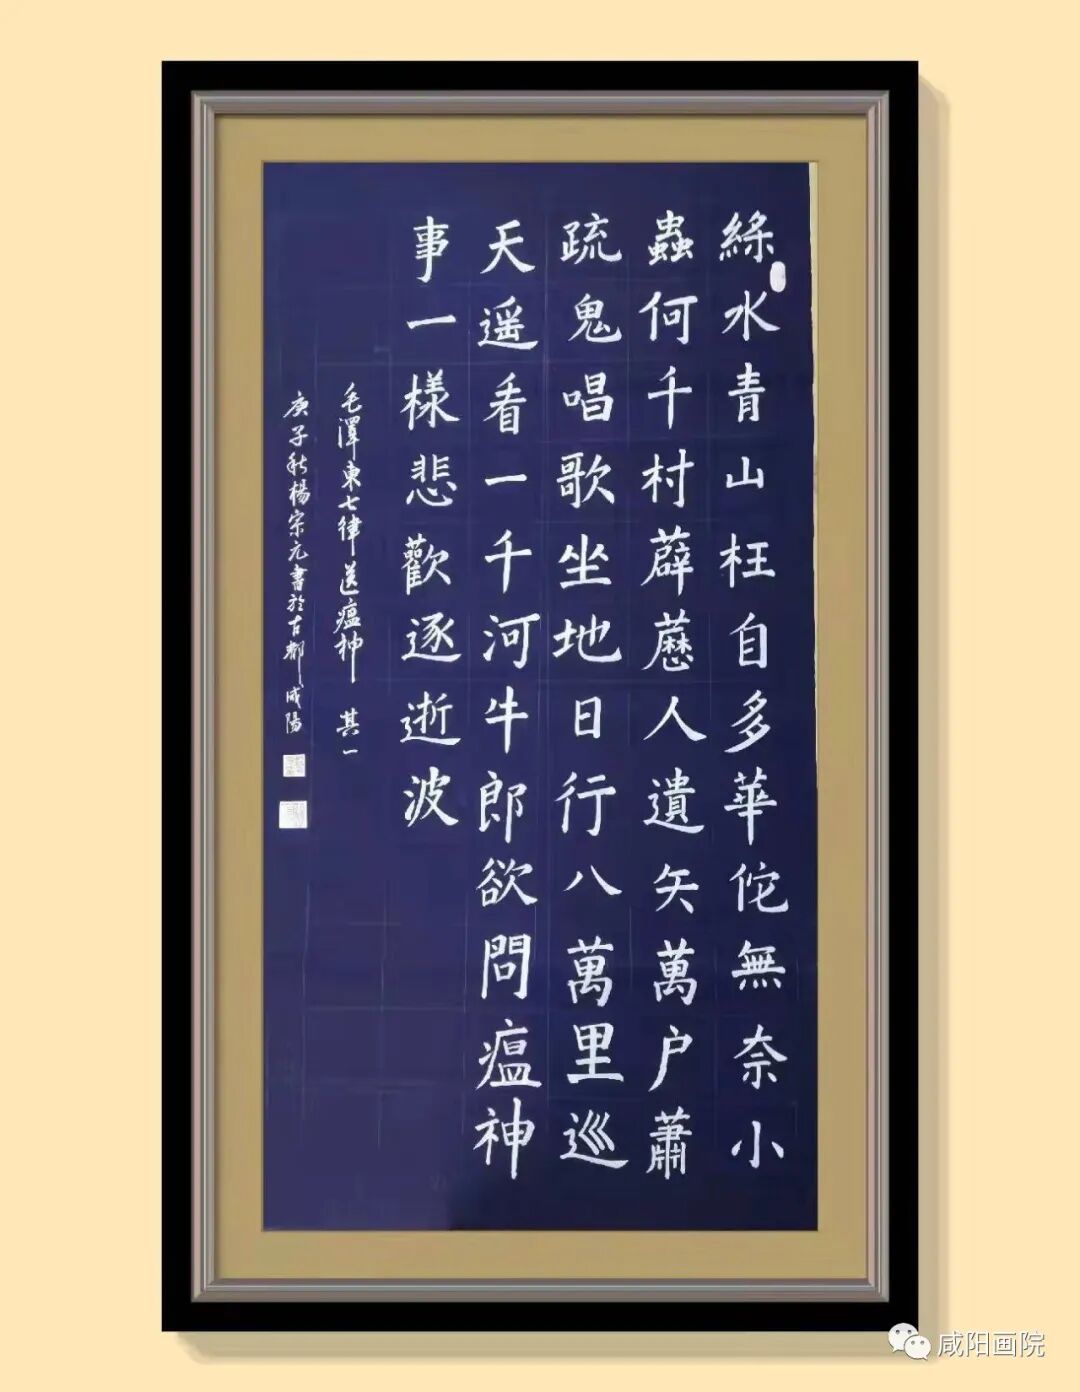 綠水青山枉自多華佗無奈小
蟲何千村薜藶人遺矢萬户蕭
疏鬼唱歌坐地日行八萬里巡
天遥看一千河牛郎欲問瘟神
事一樣悲歡逐逝波
毛澤東七律送瘟神 其一
庚子秋楊宗元書於古都咸陽
咸阳画院